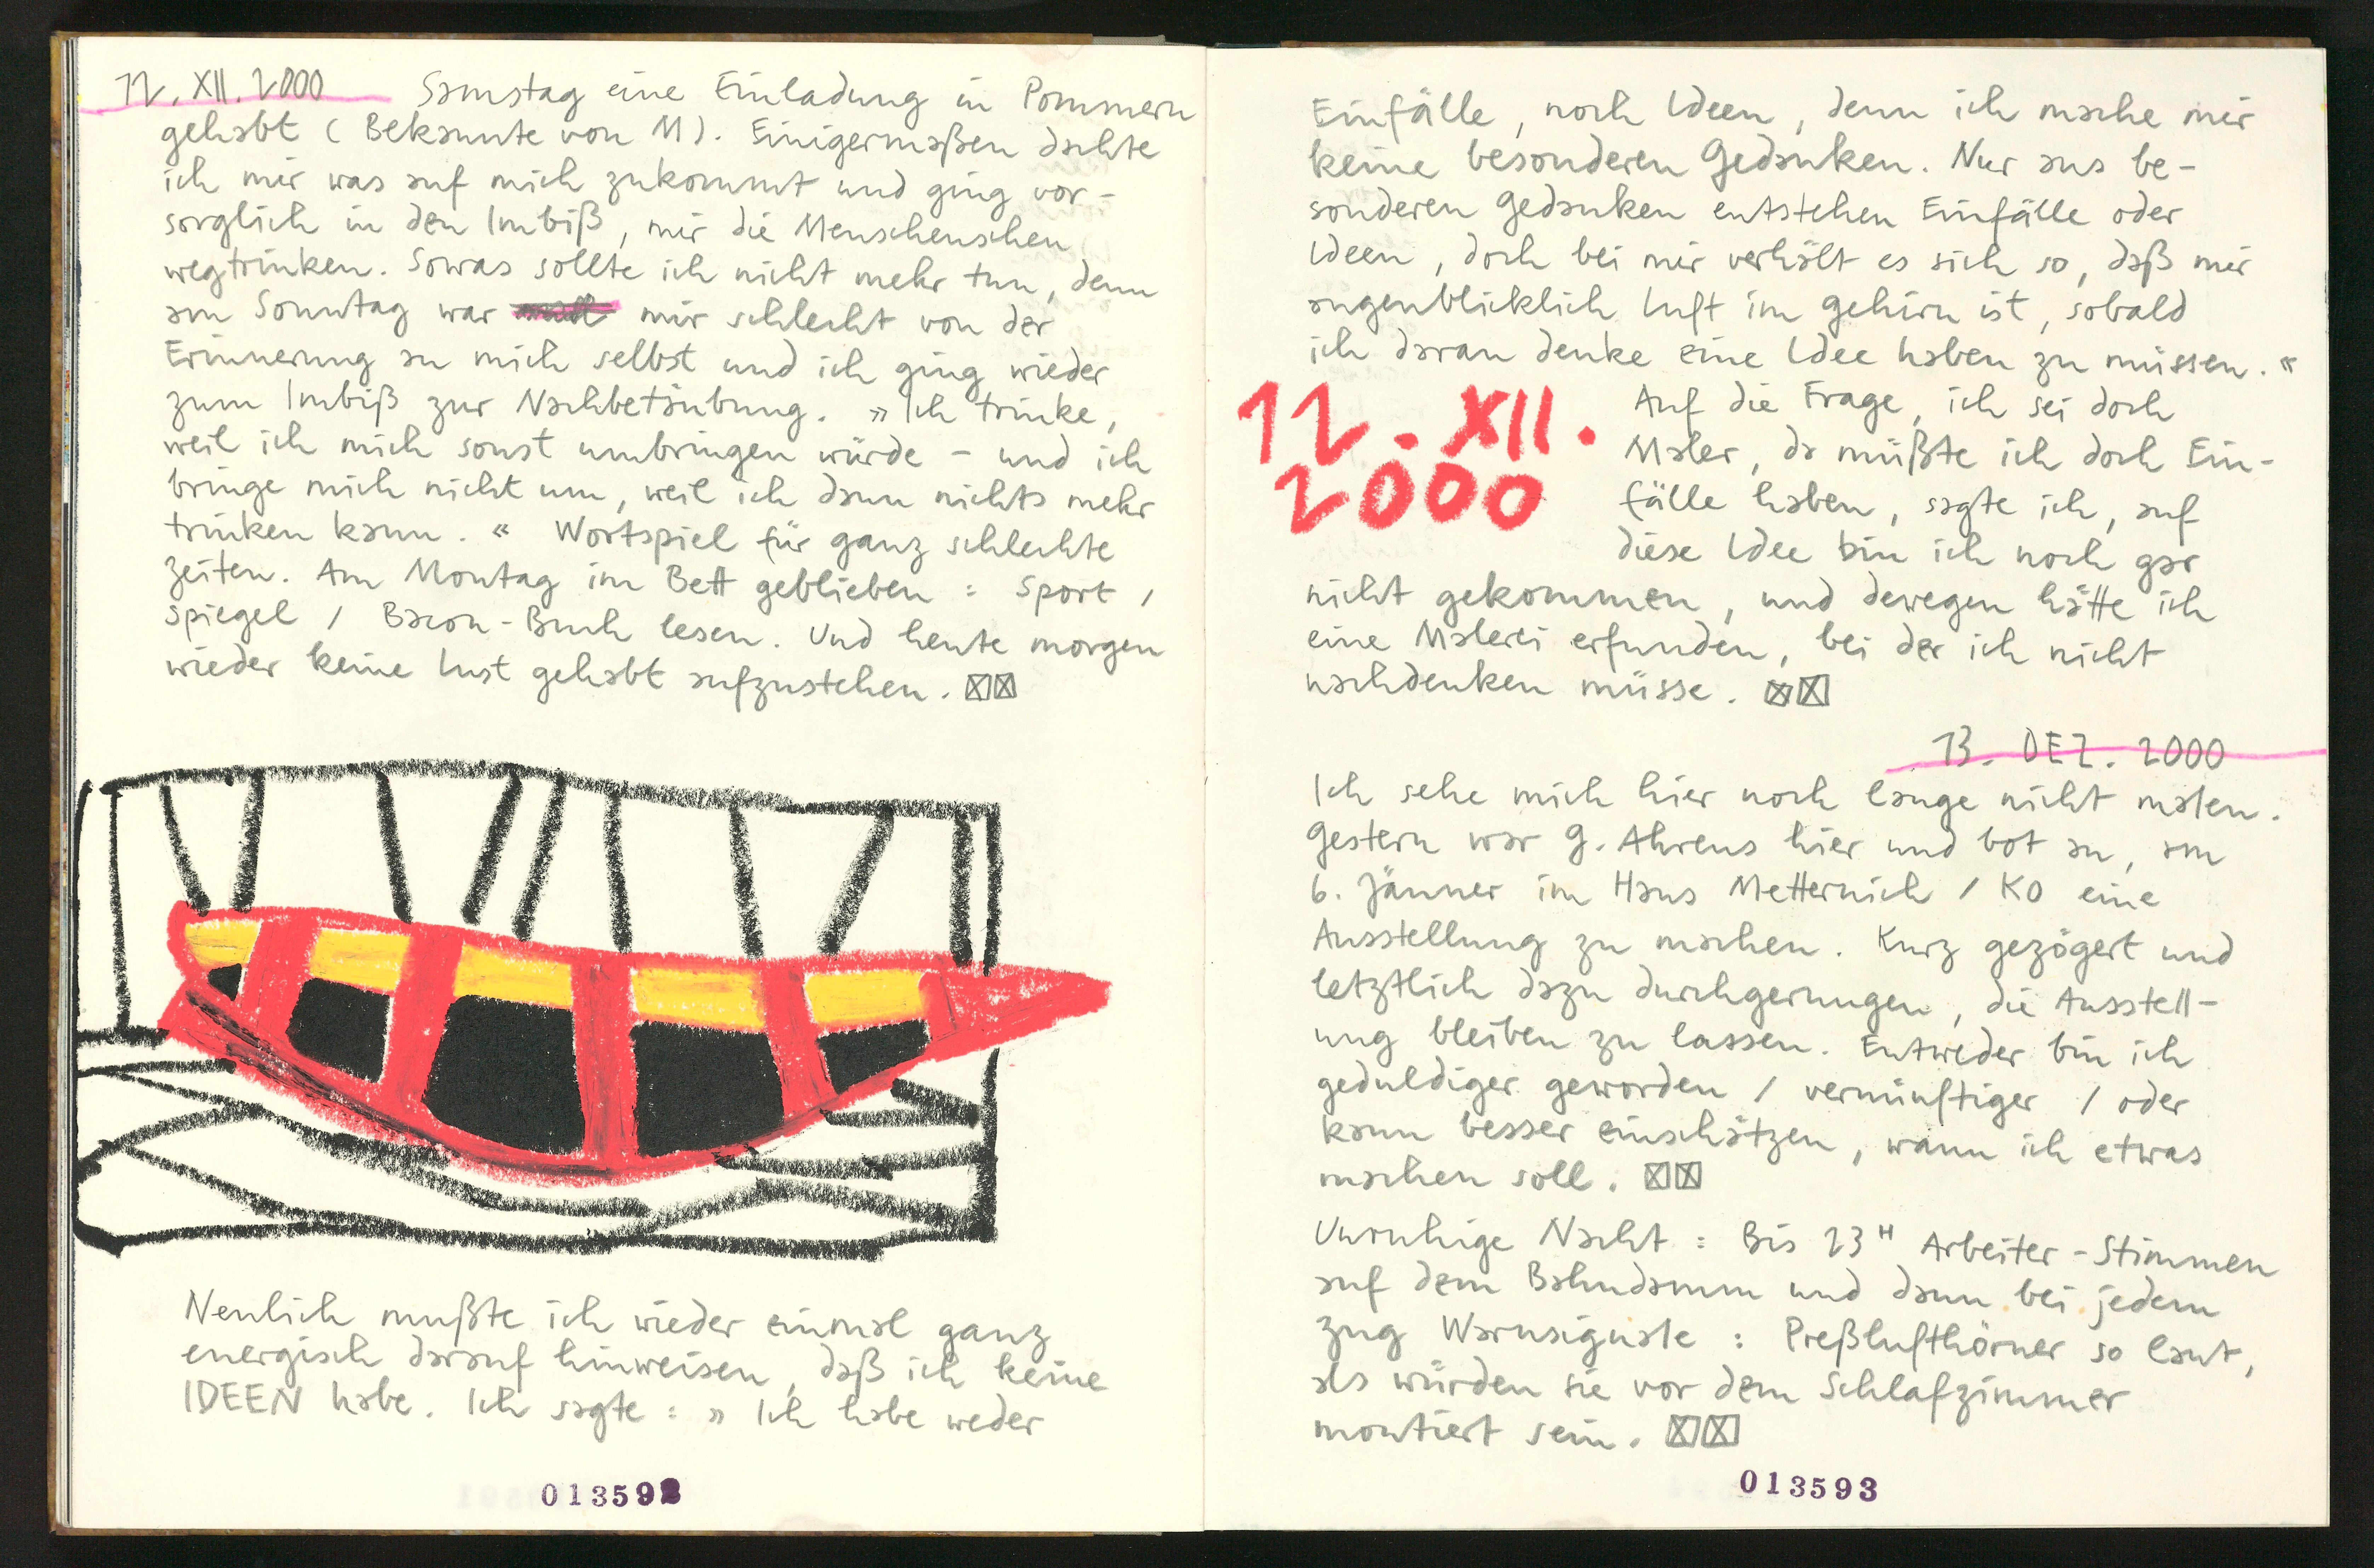 12. XII. 2000 Samstag eine Einladung in Pommern
gehabt (Bekannte von M). Einigermaßen dachte
ich mir was auf mich zukommt und ging vor-
sorglich in den Imbiß, mir die Menschenscheu
wegtrinken. Sowas sollte ich nicht mehr tun, denn
am Sonntag war mir schlecht von der
Erinnerung an mich selbst und ich ging wieder
zum Imbiß zur Nachbetäubung. » Ich trinke,
weil ich mich sonst umbringen würde – und ich
bringe mich nicht um, weil ich dann nichts mehr
trinken kann. « Wortspiel für ganz schlechte
Zeiten. Am Montag im Bett geblieben : Sport /
Spiegel / Bacon-Buch lesen. Und heute morgen
wieder keine Lust gehabt aufzustehen.
Neulich mußte ich wieder einmal ganz
energisch darauf hinweisen, daß ich keine
IDEEN habe. Ich sagte : » Ich habe weder
013592
Einfälle, noch Ideen, denn ich mache mir
keine besonderen Gedanken. Nur aus be-
sonderen Gedanken entstehen Einfälle oder
Ideen, doch bei mir verhält es sich so, daß mir
augenblicklich Luft im Gehirn ist, sobald
ich daran denke eine Idee haben zu müssen. «
12. XII.
2000
Auf die Frage, ich sei doch
Maler, da müßte ich doch Ein-
fälle haben, sagte ich, auf
diese Idee bin ich noch gar
nicht gekommen, und dewegen hätte ich
eine Malerei erfunden, bei der ich nicht
nachdenken müsse.
13. DEZ. 2000
Ich sehe mich hier noch lange nicht malen.
Gestern war G. Ahrens hier und bot an, am
6. Jänner im Haus Metternich / KO eine
Ausstellung zu machen. Kurz gezögert und
letztlich dazu durchgerungen, die Ausstell-
ung bleiben zu lassen. Entweder bin ich
geduldiger geworden / vernünftiger / oder
kann besser einschätzen, wann ich etwas
machen soll.
Unruhige Nacht : Bis 23ᴴ Arbeiter-Stimmen
auf dem Bahndamm und dann bei jedem
Zug Warnsignale : Preßlufthörner so laut,
als würden sie vor dem Schlafzimmer
montiert sein.
013593